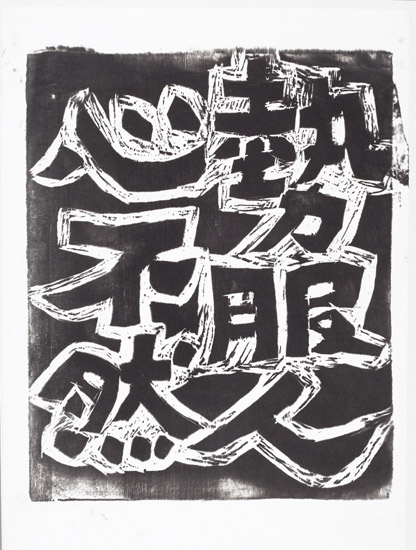 勢服人
心不然